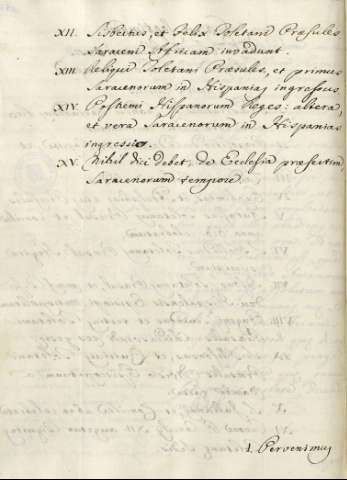 XII. Sisbertus, et Felix Toletani Præsules.
Saraceni Africam invadunt.
XIII. Reliqui Toletani Præsules, et primus
Saracenorum in Hispanias ingressus.
XIV. Postremi Hispanorum Reges: altera,
et vera Saracenorum in Hispanias
ingressio.
XV. Nihil dici debet, de Ecclesia præsertim
Saracenorum tempore.
1. Pervenimus